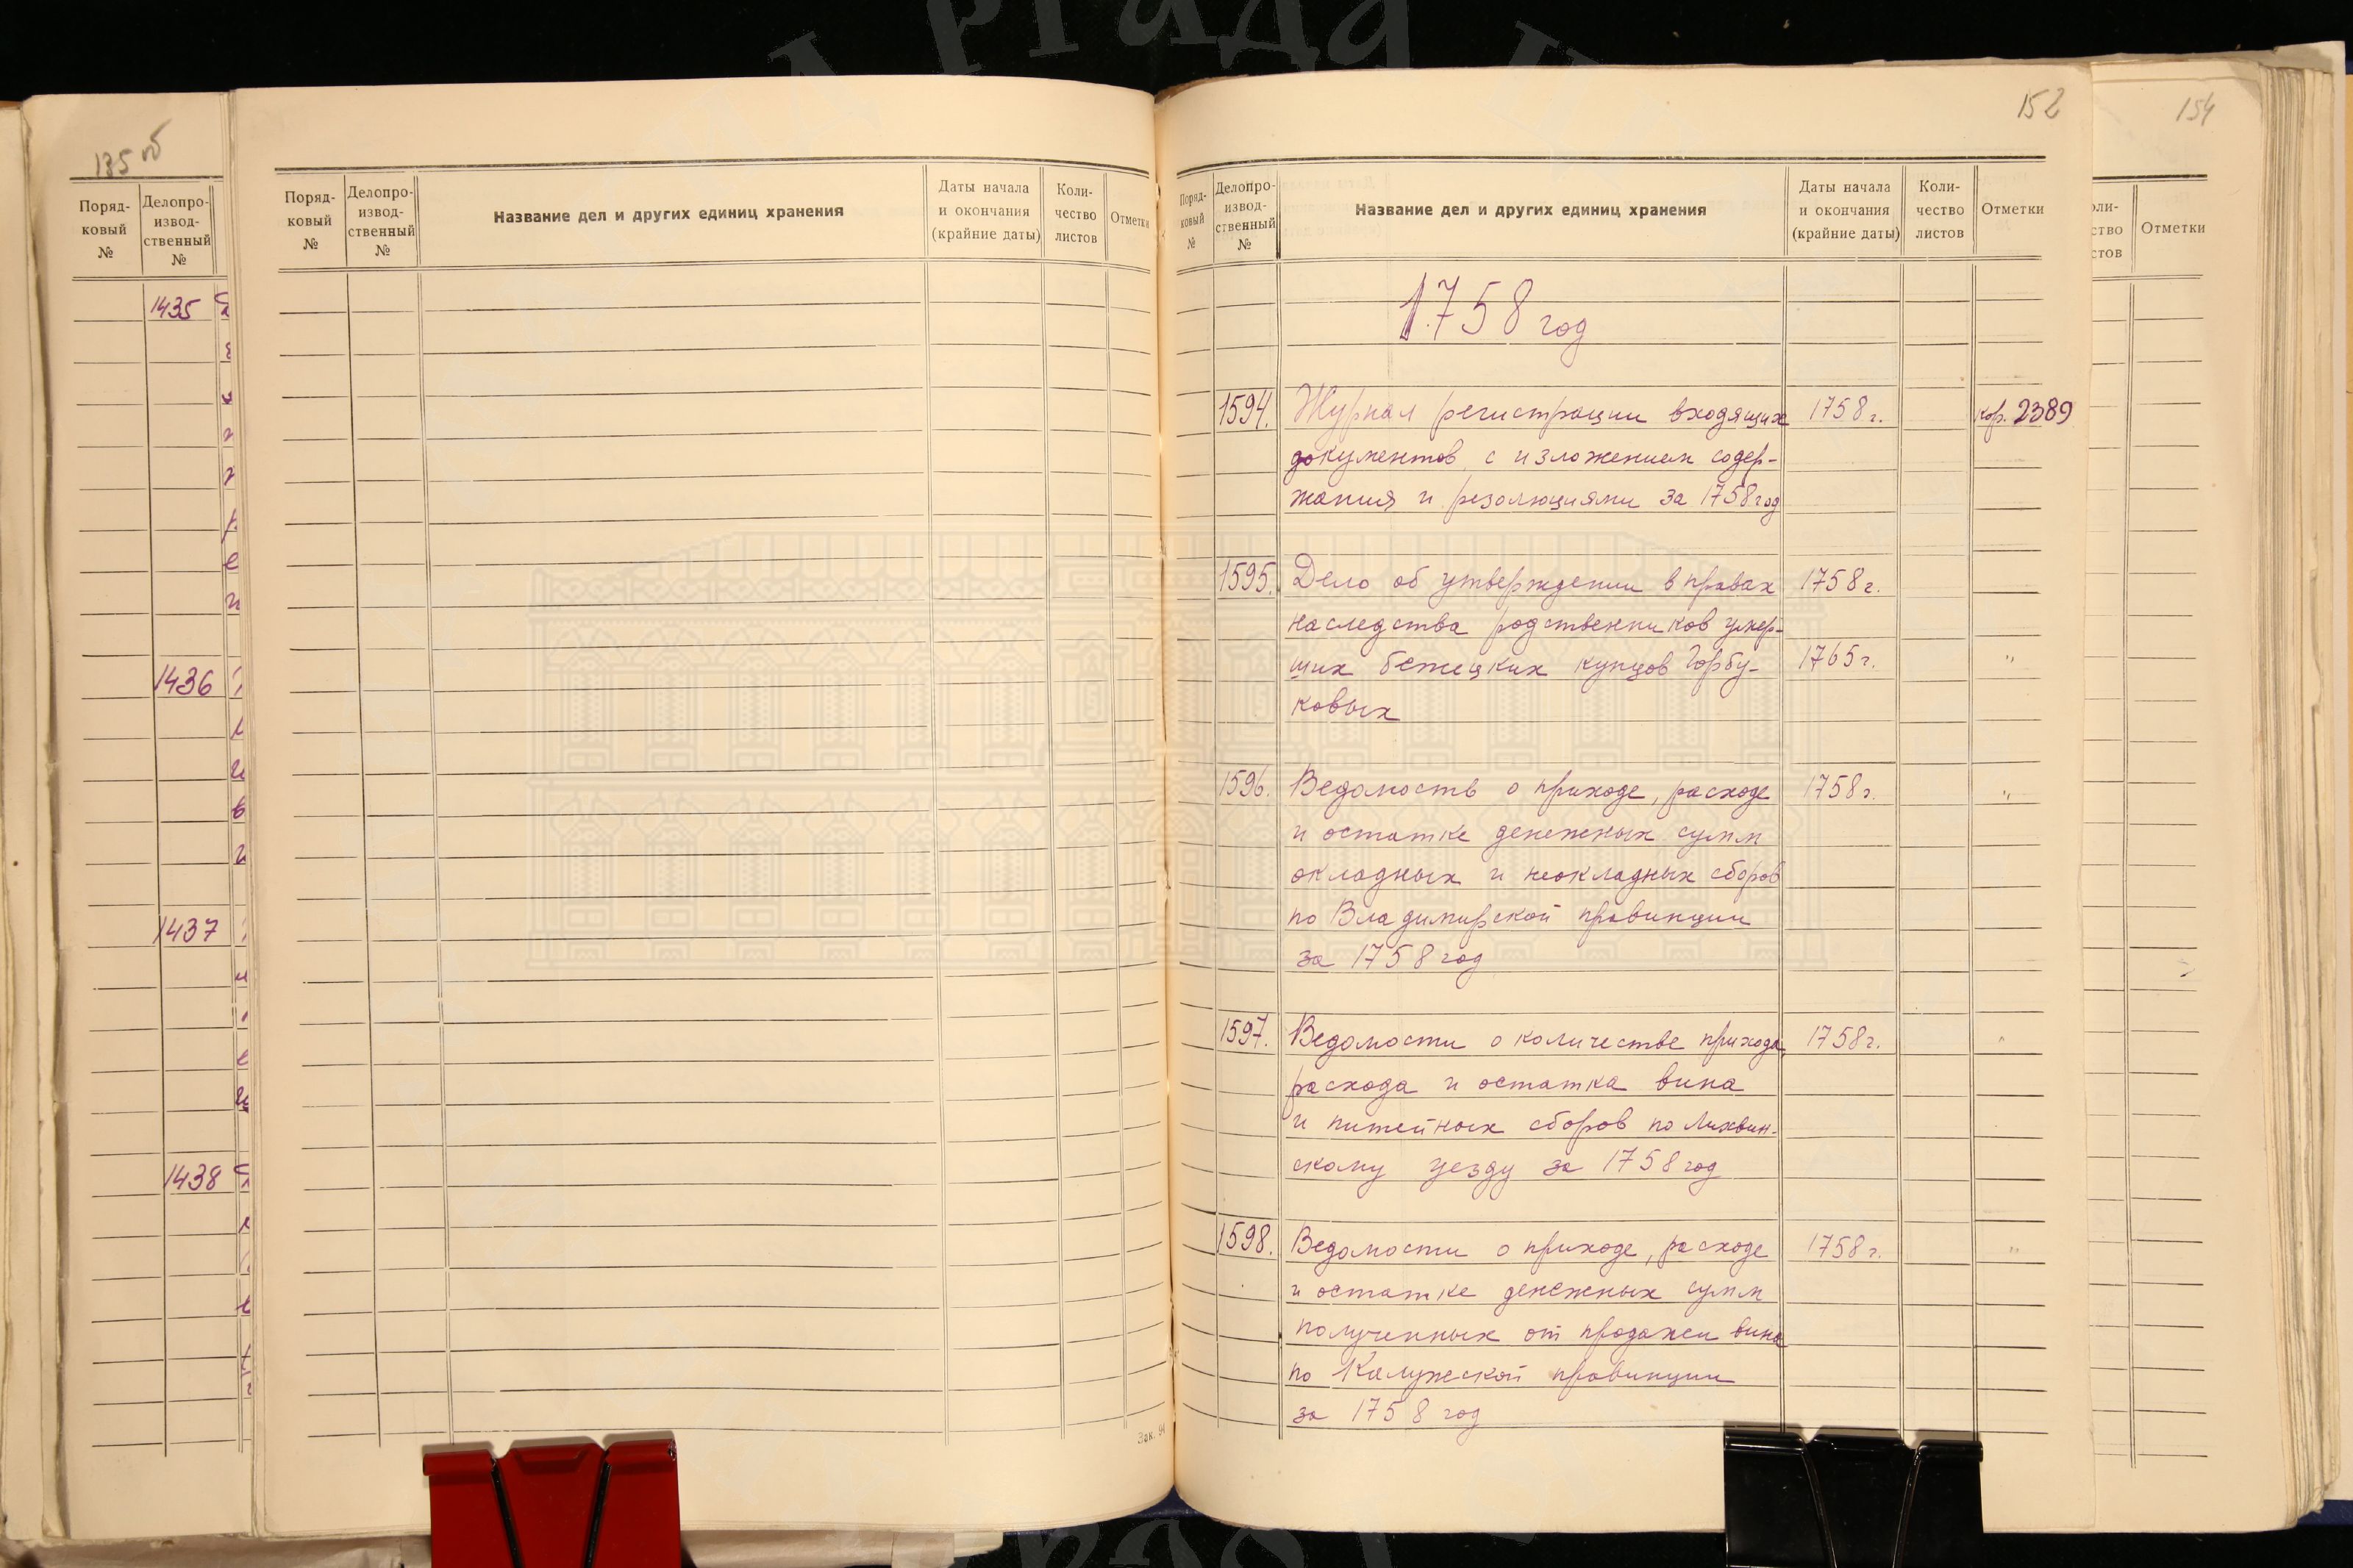 135 об
Поряд-
ковый
№
Делопро-
извод-
ственный
№
1435
1436
1437
1438
Поряд-
ковый
№
Делопро-
извод-
ственный
№
Название дел и других единиц хранения
Даты начала
и окончания
(крайние даты)
Коли-
чество
листов
Отметки
Зак. 94
152
Поряд-
ковый
№
Делопро-
извод-
ственный
№
Название дел и других единиц хранения
Даты начала
и окончания
(крайние даты)
Коли-
чество
листов
Отметки
1758 год
1594. Журнал регистрации входящих 1758 г. кор. 2389
документов с изложением содер-
жания и резолюциями за 1758 год
1595. Дело об утверждении в правах 1758 г.
наследства родственников умер-
ших бежецких купцов Горбу- 1765 г. "
ковых
1596. Ведомость о приходе, расходе 1758 г. "
и остатке денежных сумм
окладных и неокладных сборов
по Владимирской провинции
за 1758 год
1597. Ведомости о количестве прихода, 1758 г. "
расхода и остатка вина
и питейных сборов по Лихвин-
скому уезду за 1758 год
1598. Ведомости о приходе, расходе 1758 г. "
и остатке денежных сумм
полученных от продажи вина
по Калужской провинции
за 1758 год
154
оли-
ство
стов
Отметки